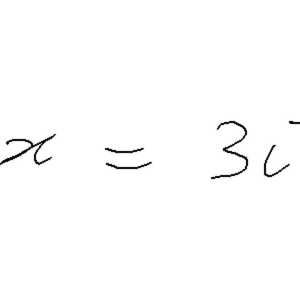 x = 3i